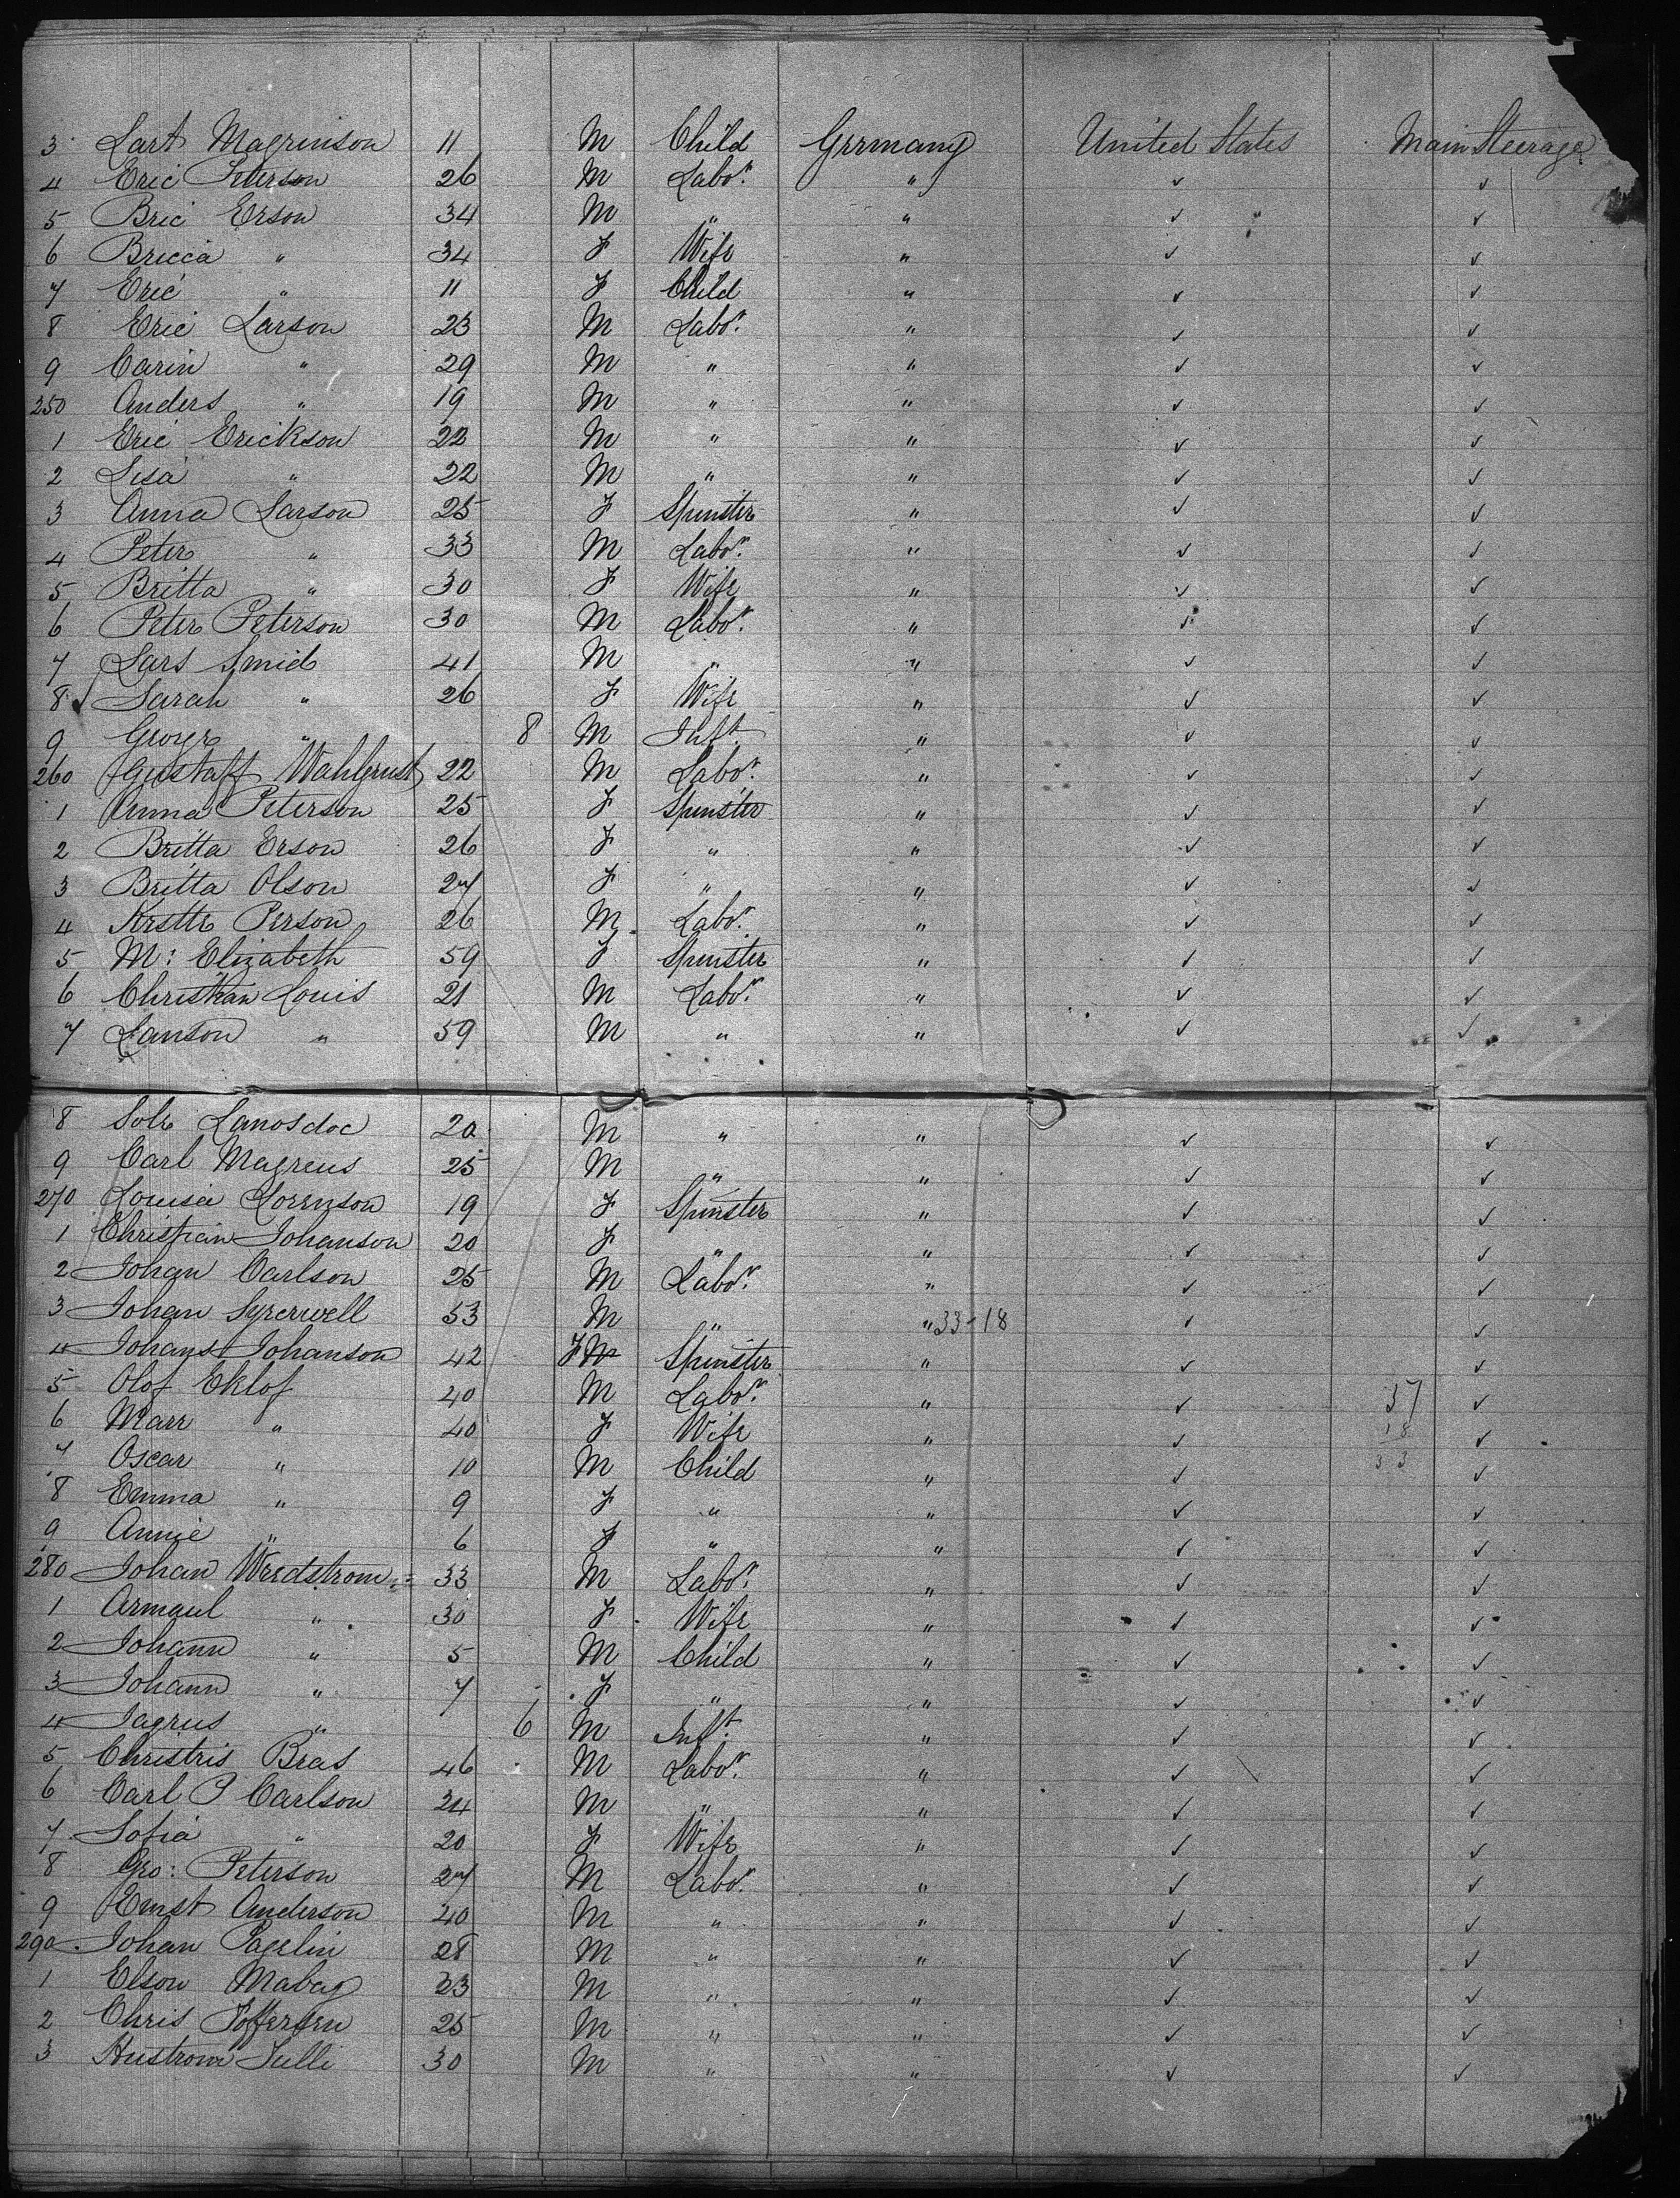 3 Lart Magrinson 11 M Child Germany United States Main Steerage
4 Eric Peterson 26 M Labo.r " ✓ ✓
5 Bric Erson 34 M " " ✓ ✓
6 Bricca " 34 F Wife " ✓ ✓
7 Eric " 11 F Child " ✓ ✓
8 Eric Larson 23 M Labo.r " ✓ ✓
9 Carin " 29 M " " ✓ ✓
250 Anders " 19 M " " ✓ ✓
1 Eric Erickson 22 M " " ✓ ✓
2 Lisa " 22 M " " ✓ ✓
3 Anna Larson 25 F Spinster " ✓ ✓
4 Peter " 33 M Labo.r " ✓ ✓
5 Britta " 30 F Wife " ✓ ✓
6 Peter Peterson 30 M Labo.r " ✓ ✓
7 Lars Smid 41 M " " ✓ ✓
8 Sarah " 26 F Wife " ✓ ✓
9 George " 8 M Inft " ✓ ✓
260 Gustaff Wahlgrust 22 M Labo.r " ✓ ✓
1 Anna Peterson 25 F Spinster " ✓ ✓
2 Britta Erson 26 F " " ✓ ✓
3 Britta Olson 27 F " " ✓ ✓
4 Krstte Person 26 M Labo.r " ✓ ✓
5 M: Elizabeth 59 F Spinster " ✓ ✓
6 Christian Louis 21 M Labo.r " ✓ ✓
7 Lanson " 59 M " " ✓ ✓
8 Sole Lanosdoc 20 M " " ✓ ✓
9 Carl Magreus 25 M " " ✓ ✓
270 Louisa Lorenson 19 F Spinster " ✓ ✓
1 Christian Johanson 20 F " " ✓ ✓
2 Johan Carlson 25 M Labo.r " ✓ ✓
3 Johan 53 M " " 33-18 ✓ ✓
4 Johans Johanson 42 F M Spinster " ✓ ✓
5 Olof Eklof 40 M Labo.r " ✓ 37 ✓
6 Marr " 40 F Wife " ✓ 18 ✓
7 Oscar " 10 M Child " ✓ 33 ✓
8 Emma " 9 F " " ✓ ✓
9 Annie " 6 F " " ✓ ✓
280 Johan Weedstrom 33 M Labo.r " ✓ ✓
1 Armaul " 30 F Wife " ✓ ✓
2 Johann " 5 M Child " ✓ ✓
3 Johann " 7 F " " ✓ ✓
4 Jagrus " 6 M Inft " ✓ ✓
5 Christris Bras 46 M Labo.r " ✓ ✓
6 Carl P Carlson 24 M " " ✓ ✓
7 Sofia " 20 F Wife " ✓ ✓
8 Geo: Peterson 27 M Labo.r " ✓ ✓
9 Ernst Anderson 40 M " " ✓ ✓
290 Johan Pagelin 28 M " " ✓ ✓
1 Elson Mabag 23 M " " ✓ ✓
2 Chris Toffersen 25 M " " ✓ ✓
3 Hustrom 30 M " " ✓ ✓